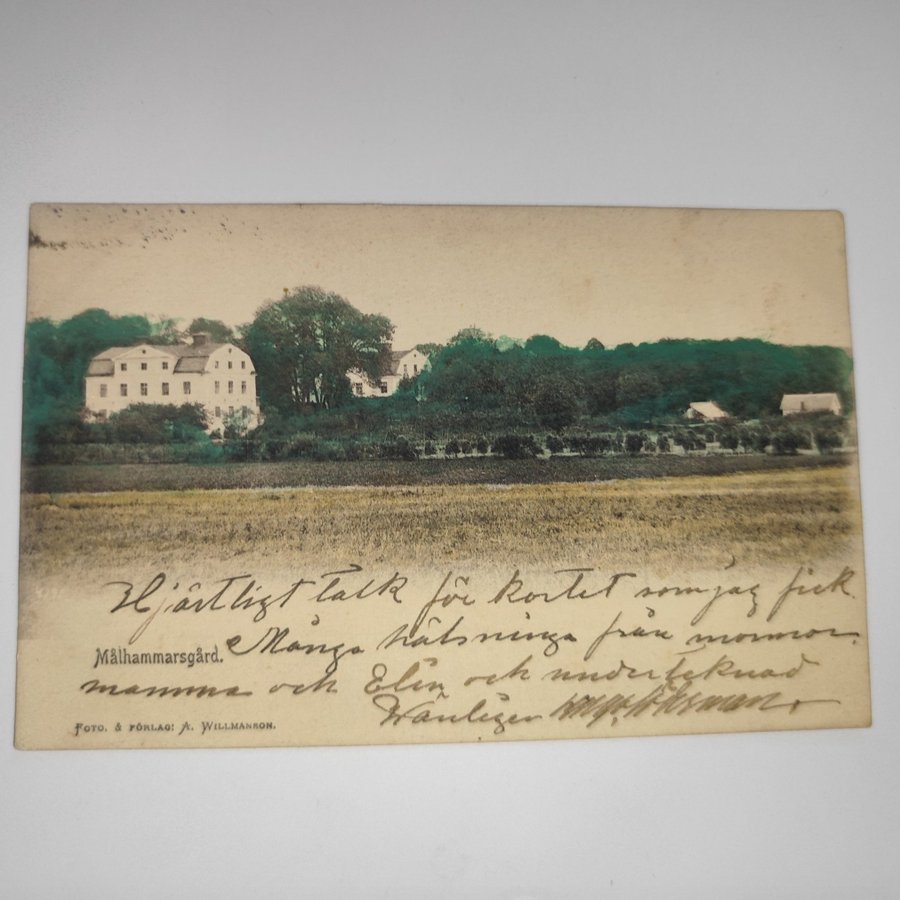 Hjärtligt tack för kortet som jag fick.
Många hälsninga från mormor
Målhammarsgård.
mamma och Elin och undertecknad
Vänligen
FOTO. & FÖRLAG: A. WILLMANSON.